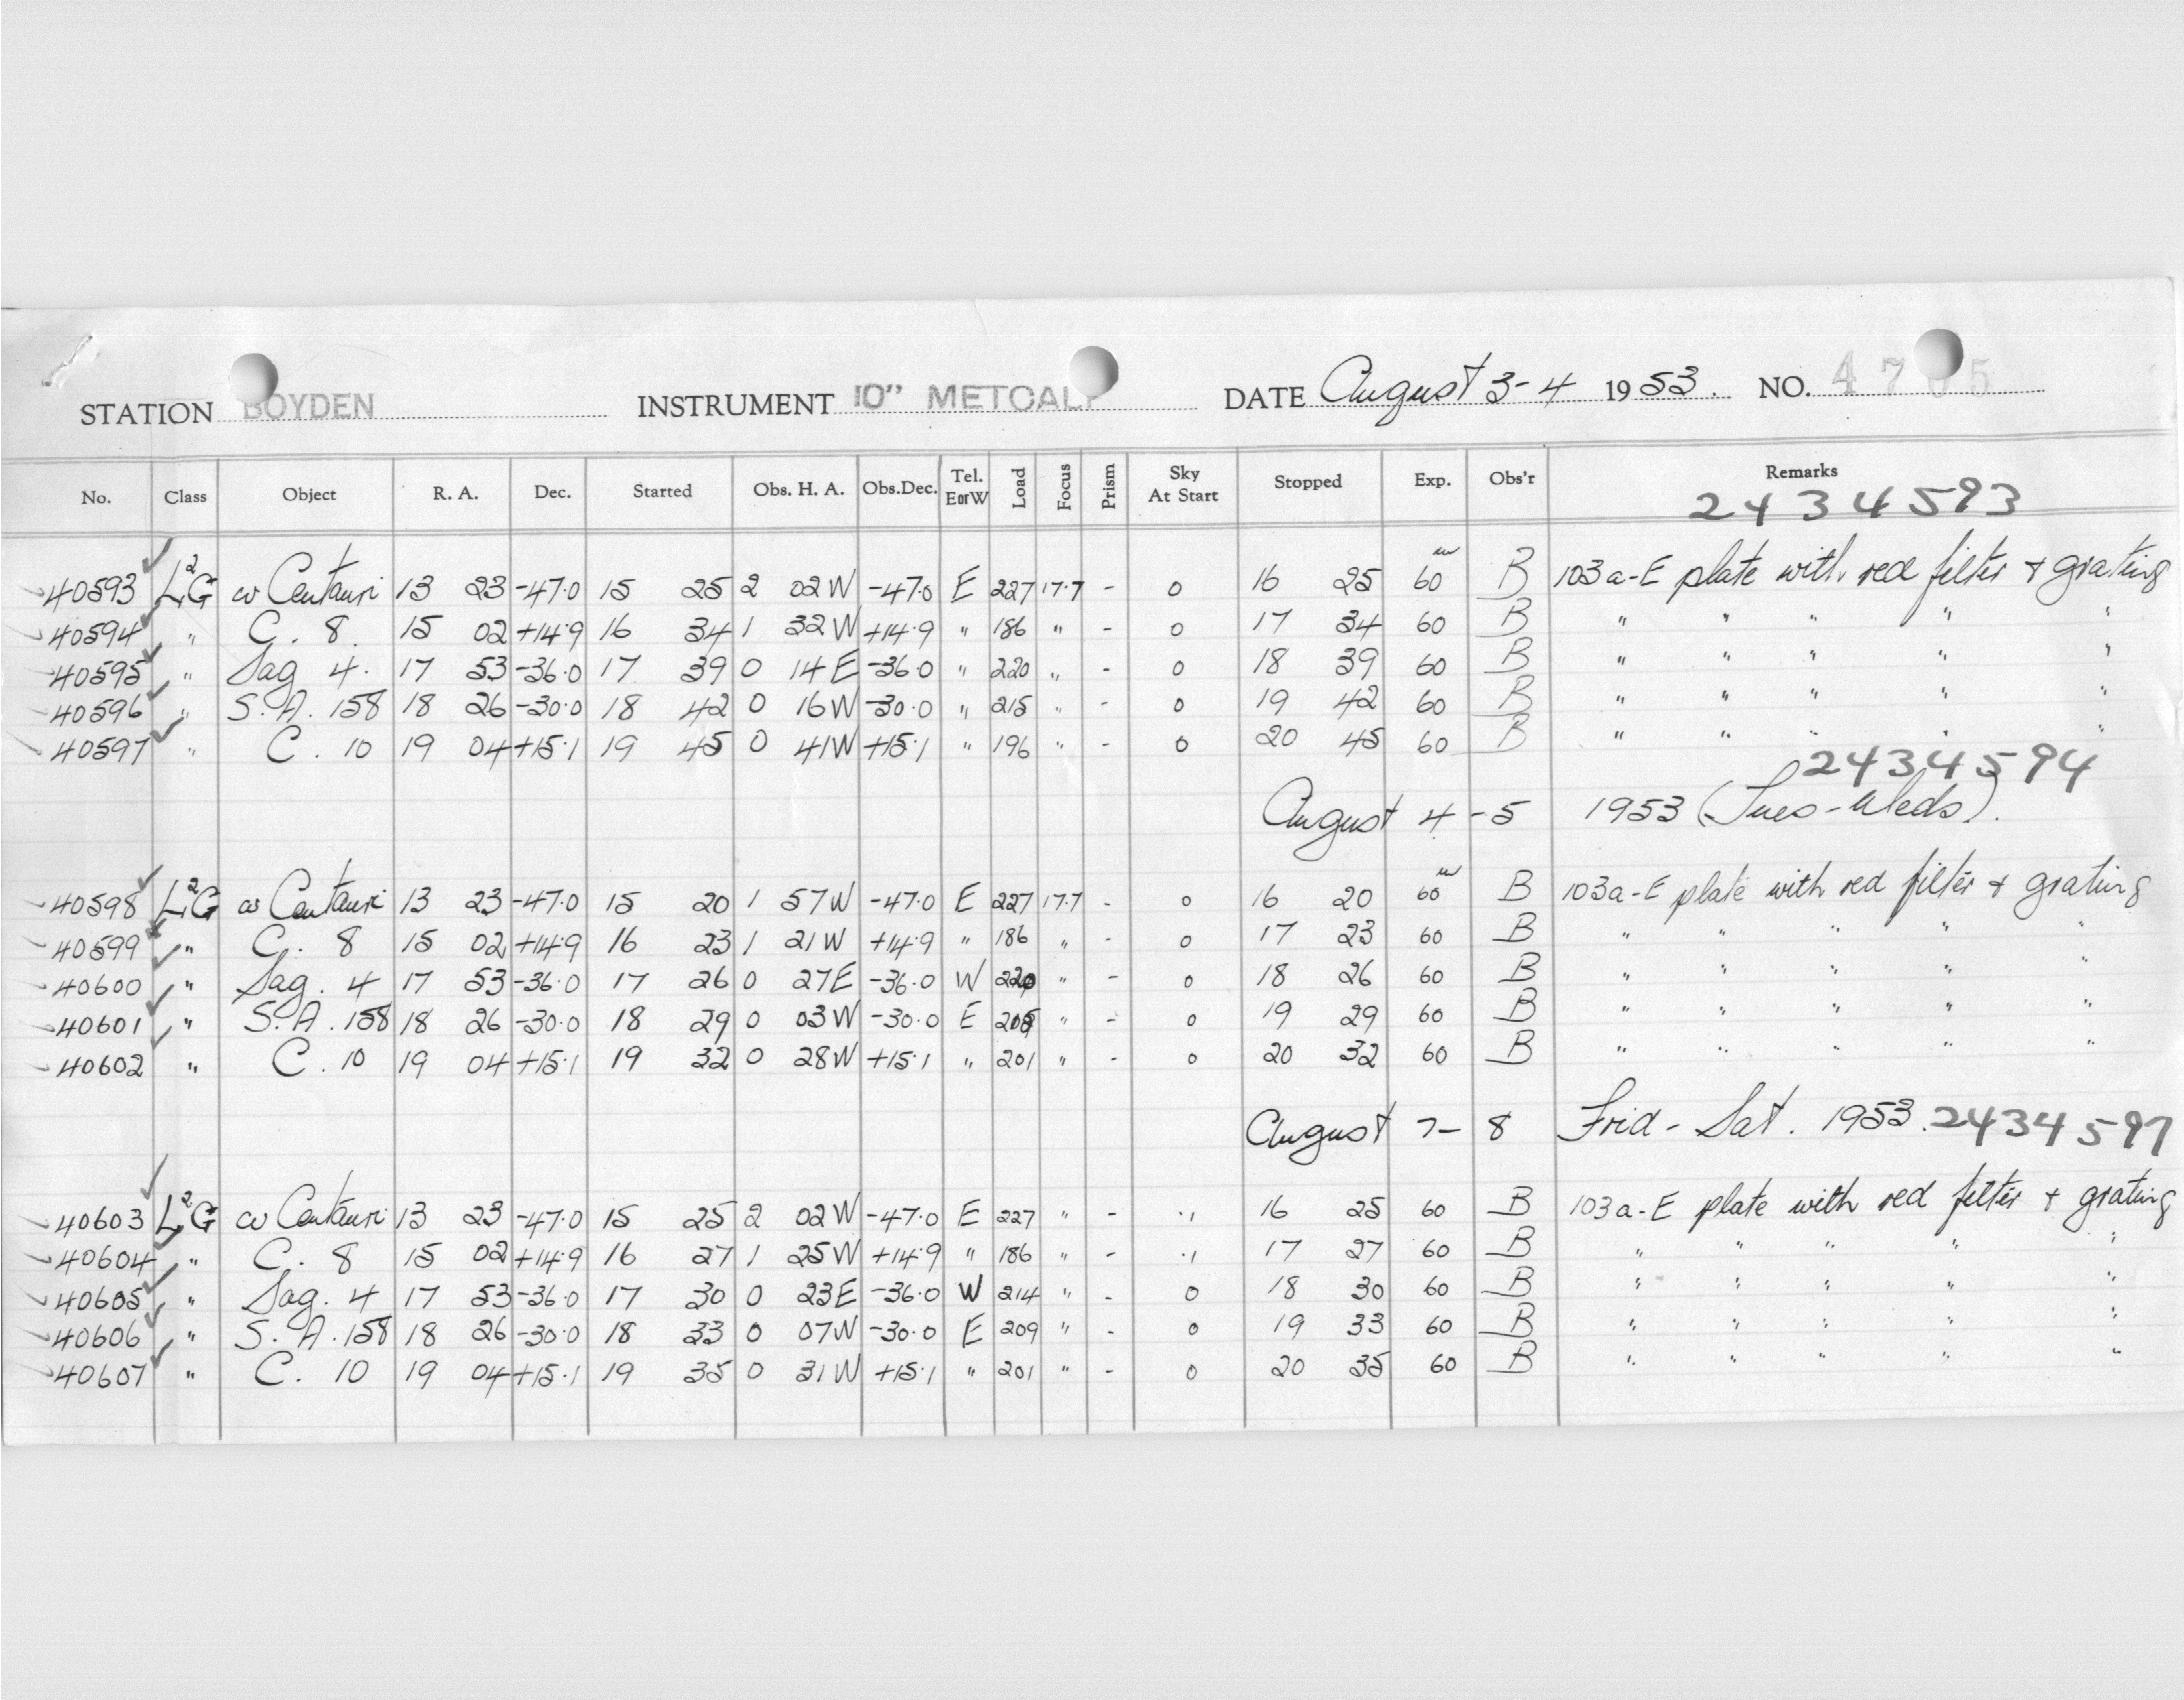 STATION BOYDEN INSTRUMENT 10" METCALF DATE August 3-4 1953. NO. 4705
No. Class Object R. A. Dec. Started Obs. H. A. Obs.Dec. Tel. EorW Load Focus Prism Sky At Start Stopped Exp. Obs'r Remarks
2434593
40593 L²G ω Centauri 13 23 -47.0 15 25 2 02W -47.0 E 227 17.7 - 0 16 25 60ᵐ B 103a-E plate with red filter + grating
40594 " C. 8. 15 02 +14.9 16 34 1 32W +14.9 " 186 " - 0 17 34 60 B " " " " "
40595 " Sag 4. 17 53 -36.0 17 39 0 14E -36.0 " 220 " - 0 18 39 60 B " " " " "
40596 " S.A. 158 18 26 -30.0 18 42 0 16W -30.0 " 215 " - 0 19 42 60 B " " " " "
40597 " C. 10 19 04 +15.1 19 45 0 41W +15.1 " 196 " - 0 20 45 60 B " " " " "
2434594
August 4-5 1953 (Tues-Weds).
40598 L²G ω Centauri 13 23 -47.0 15 20 1 57W -47.0 E 227 17.7 - 0 16 20 60ᵐ B 103a-E plate with red filter + grating
40599 " C. 8 15 02 +14.9 16 23 1 21W +14.9 " 186 " - 0 17 23 60 B " " " " "
40600 " Sag. 4 17 53 -36.0 17 26 0 27E -36.0 W 220 " - 0 18 26 60 B " " " " "
40601 " S.A. 158 18 26 -30.0 18 29 0 03W -30.0 E " - 0 19 29 60 B " " " " "
40602 " C. 10 19 04 +15.1 19 32 0 28W +15.1 " 201 " - 0 20 32 60 B " " " " "
August 7-8 Frid-Sat. 1953. 2434597
40603 L²G ω Centauri 13 23 -47.0 15 25 2 02W -47.0 E 227 " - .1 16 25 60 B 103a-E plate with red filter + grating
40604 " C. 8 15 02 +14.9 16 27 1 25W +14.9 " 186 " - .1 17 27 60 B " " " " "
40605 " Sag. 4 17 53 -36.0 17 30 0 23E -36.0 W 214 " - 0 18 30 60 B " " " " "
40606 " S.A. 158 18 26 -30.0 18 33 0 07W -30.0 E 209 " - 0 19 33 60 B " " " " "
40607 " C. 10 19 04 +15.1 19 35 0 31W +15.1 " 201 " - 0 20 35 60 B " " " " "